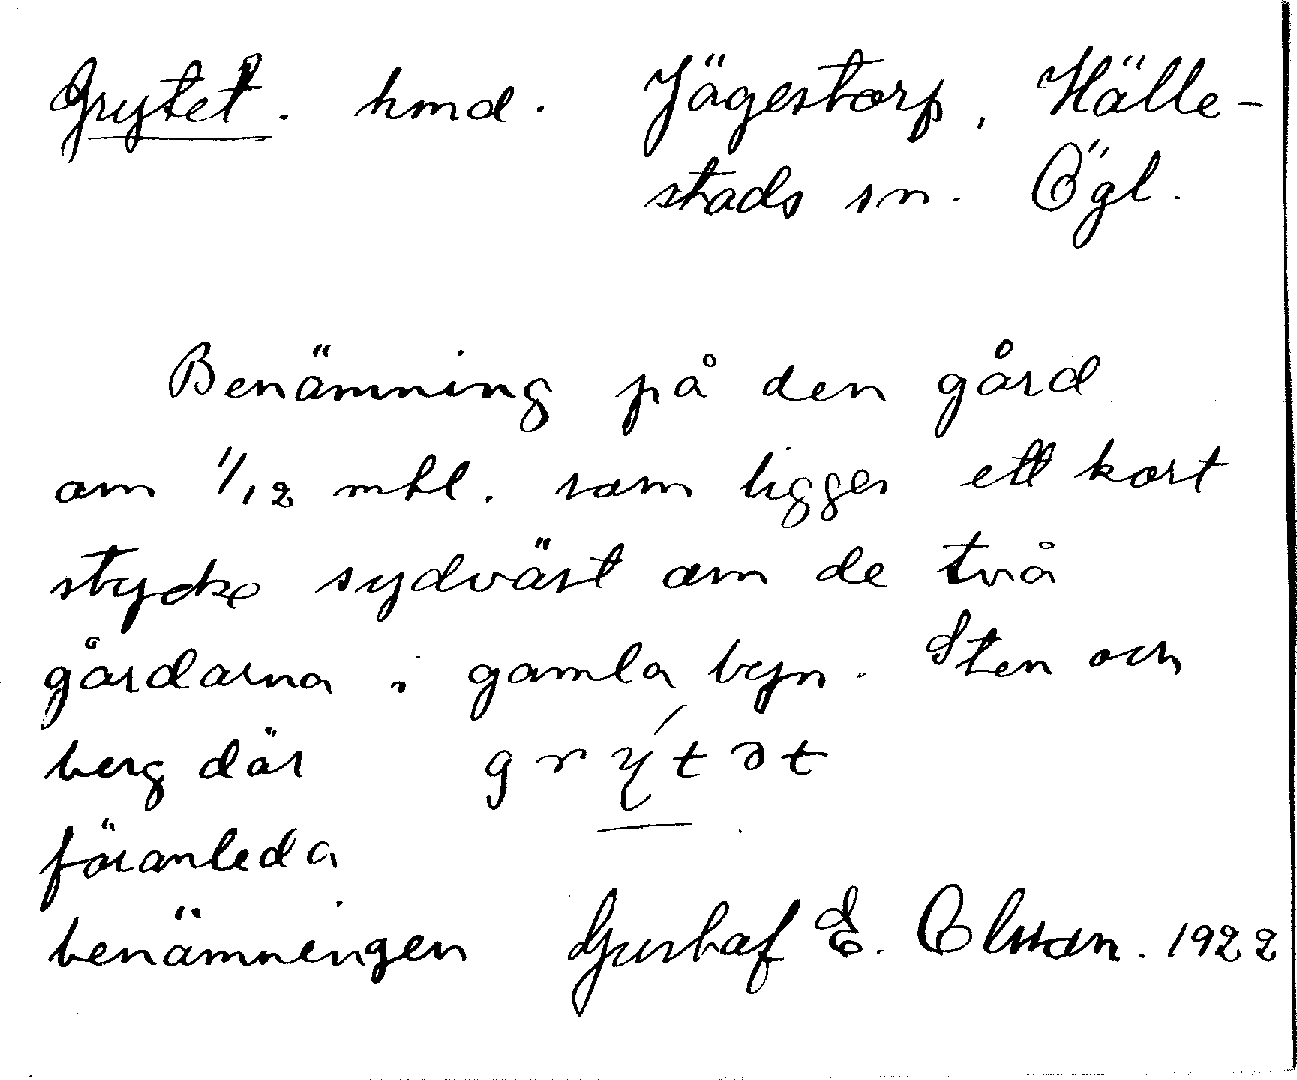 Grytet. hmd. Jägestorp, Hälle-
stads sn. Ögl.
Benämning på den gård
om 1/12 mtl. som ligger ett kort
stycke sydväst om de två
gårdarna i gamla byn. Sten och
berg där grýtət
föranleda
benämningen Gustaf E. Olsson. 1922